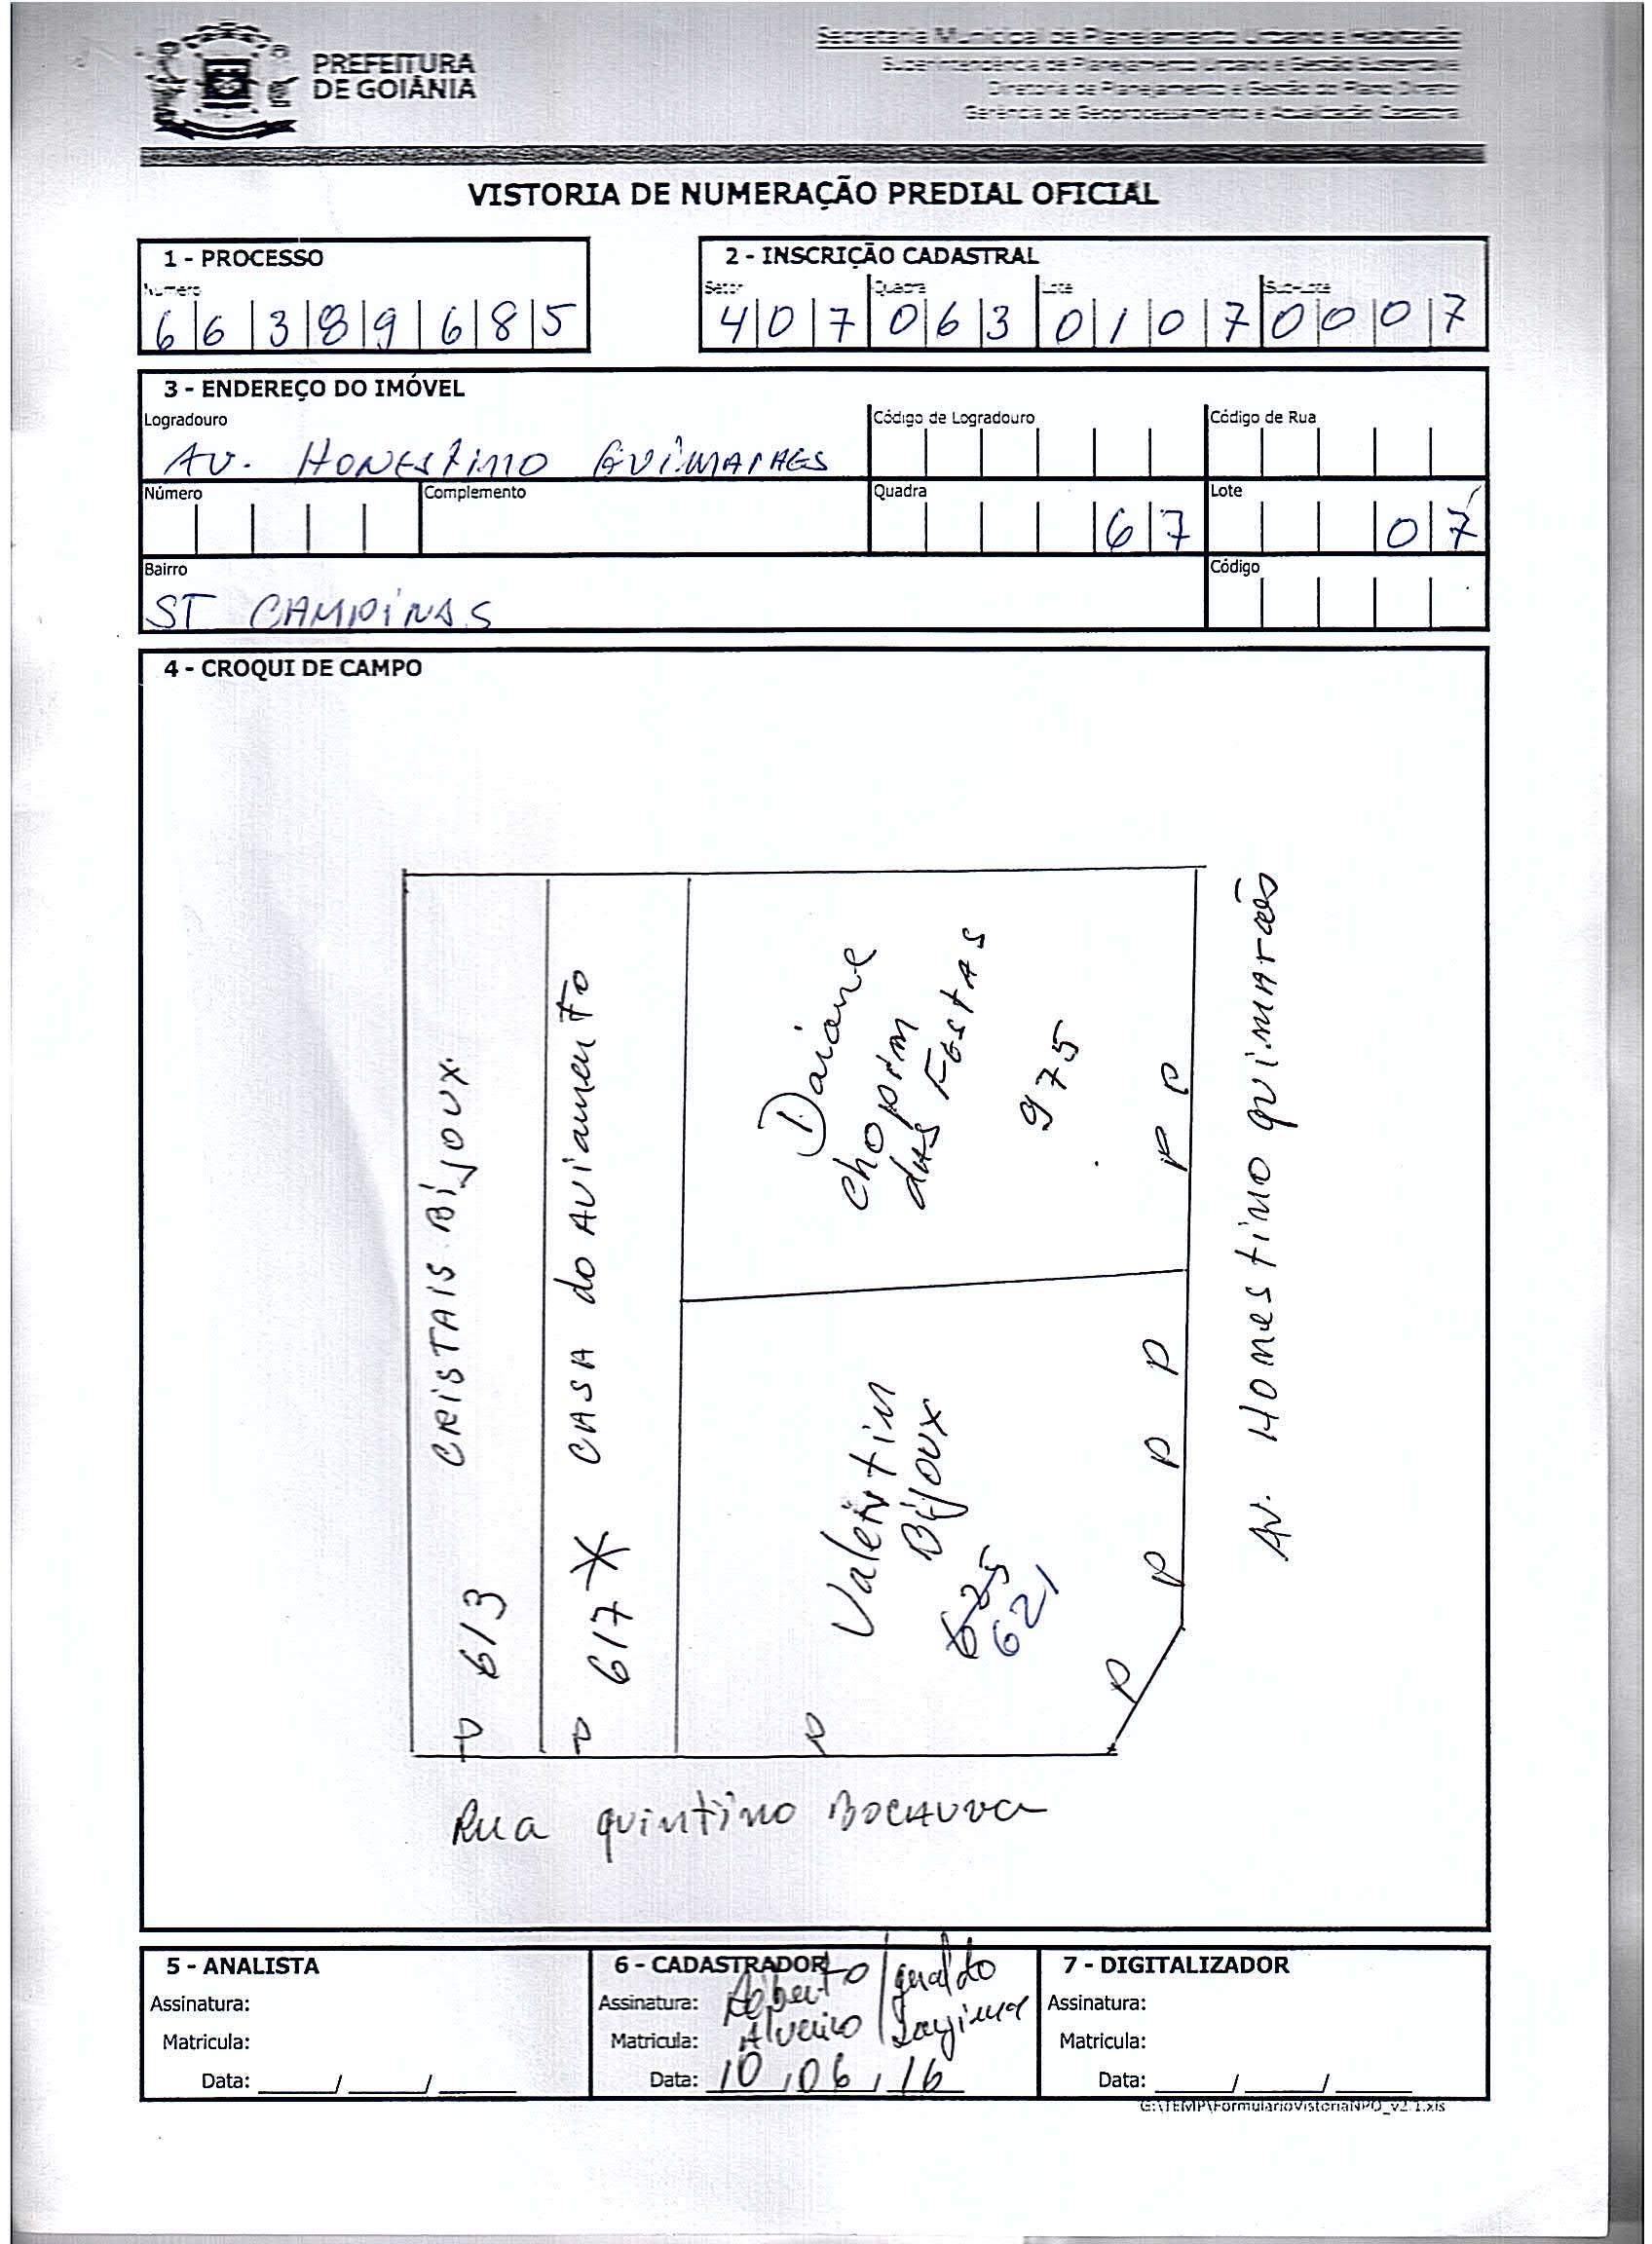 PREFEITURA
DE GOIÂNIA
Secretaria Municipal de Planejamento Urbano e Habitação
Superintendência de Planejamento Urbano e Gestão Sustentável
Diretoria de Planejamento e Gestão do Plano Diretor
Gerência de Geoprocessamento e Atualização Cadastral
VISTORIA DE NUMERAÇÃO PREDIAL OFICIAL
1 - PROCESSO
Número
6 6 3 8 9 6 8 5
2 - INSCRIÇÃO CADASTRAL
Setor Quadra Lote Sub-Lote
4 0 7 0 6 3 0 1 0 7 0 0 0 7
3 - ENDEREÇO DO IMÓVEL
Logradouro
AV. HONESTINO GUIMARAES
Código de Logradouro
Código de Rua
Número
Complemento
Quadra
6 7
Lote
0 7
Bairro
ST CAMPINAS
Código
4 - CROQUI DE CAMPO
P 613 CRISTAIS BIJOUX
P 617 * CASA do AViamento
Daiane
chopim
das FESTAS
975
P P
Valentin
BIJOUX
625
621
P P P P P
AV. Honestino guimarães
Rua quintino BOCAUVA
5 - ANALISTA
Assinatura:
Matricula:
Data: ____/____/____
6 - CADASTRADOR
Assinatura: Roberto / geraldo
Matricula:
Data: 10,06,16
7 - DIGITALIZADOR
Assinatura:
Matricula:
Data: ____/____/____
G:\TEMP\FormularioVistoriaNPO_v2.1.xls